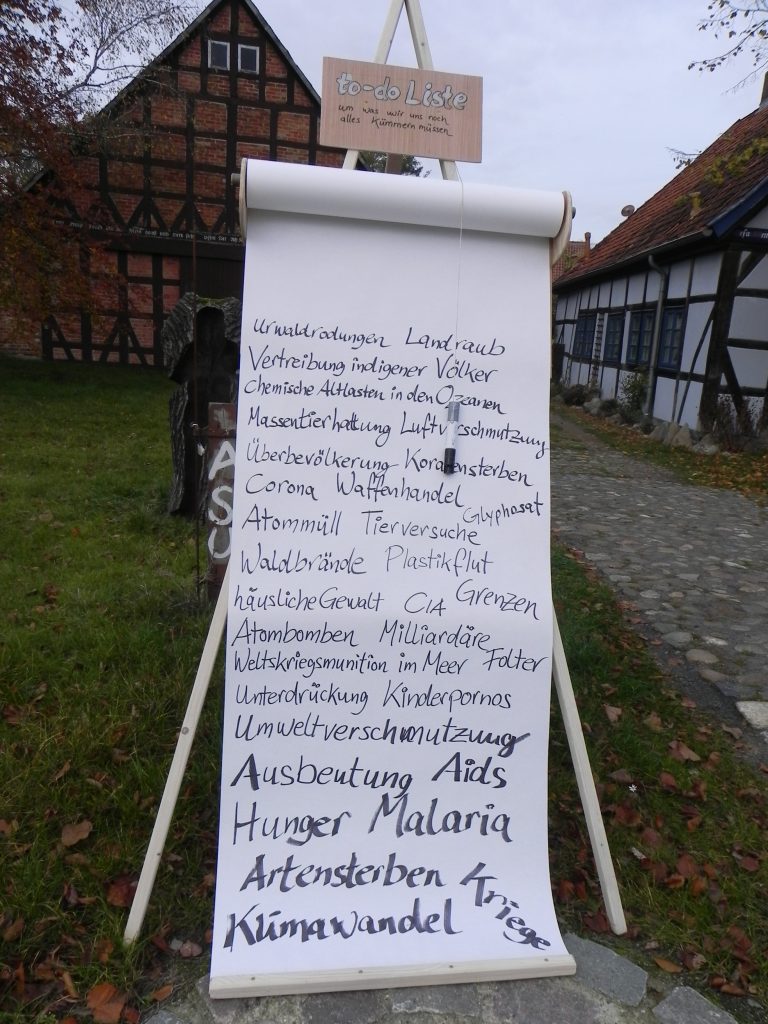 to-do Liste
um was wir uns noch
alles kümmern müssen
Urwaldrodungen Landraub
Vertreibung indigener Völker
Chemische Altlasten in den Ozeanen
Massentierhaltung Luftverschmutzung
Überbevölkerung Korallensterben
Corona Waffenhandel
Glyphosat
Atommüll Tierversuche
Waldbrände Plastikflut
häusliche Gewalt CIA Grenzen
Atombomben Milliardäre
Weltskriegsmunition im Meer Folter
Unterdrückung Kinderpornos
Umweltverschmutzung
Ausbeutung Aids
Hunger Malaria
Artensterben Kriege
Klimawandel